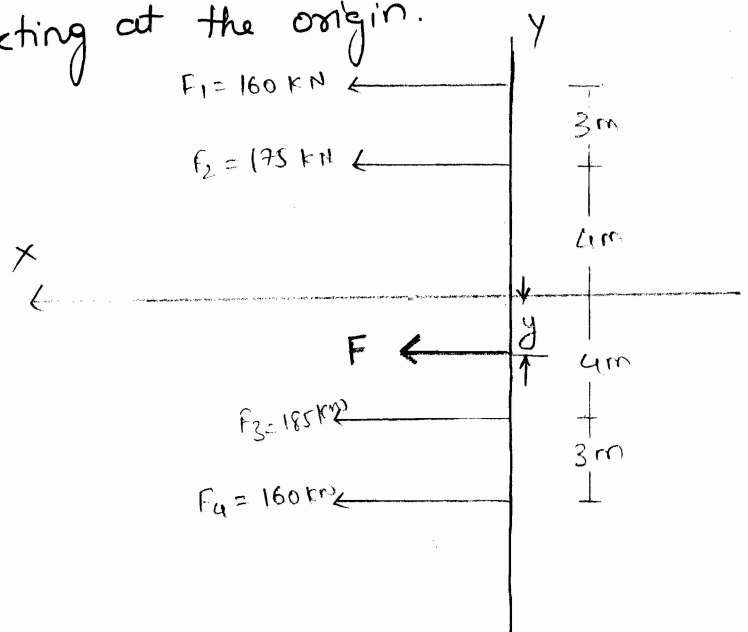 cting at the origin.
Y
F₁ = 160 KN
3m
F₂ = 175 KN
4m
X
F
y
4m
F₃ = 185 KN
3m
F₄ = 160 KN